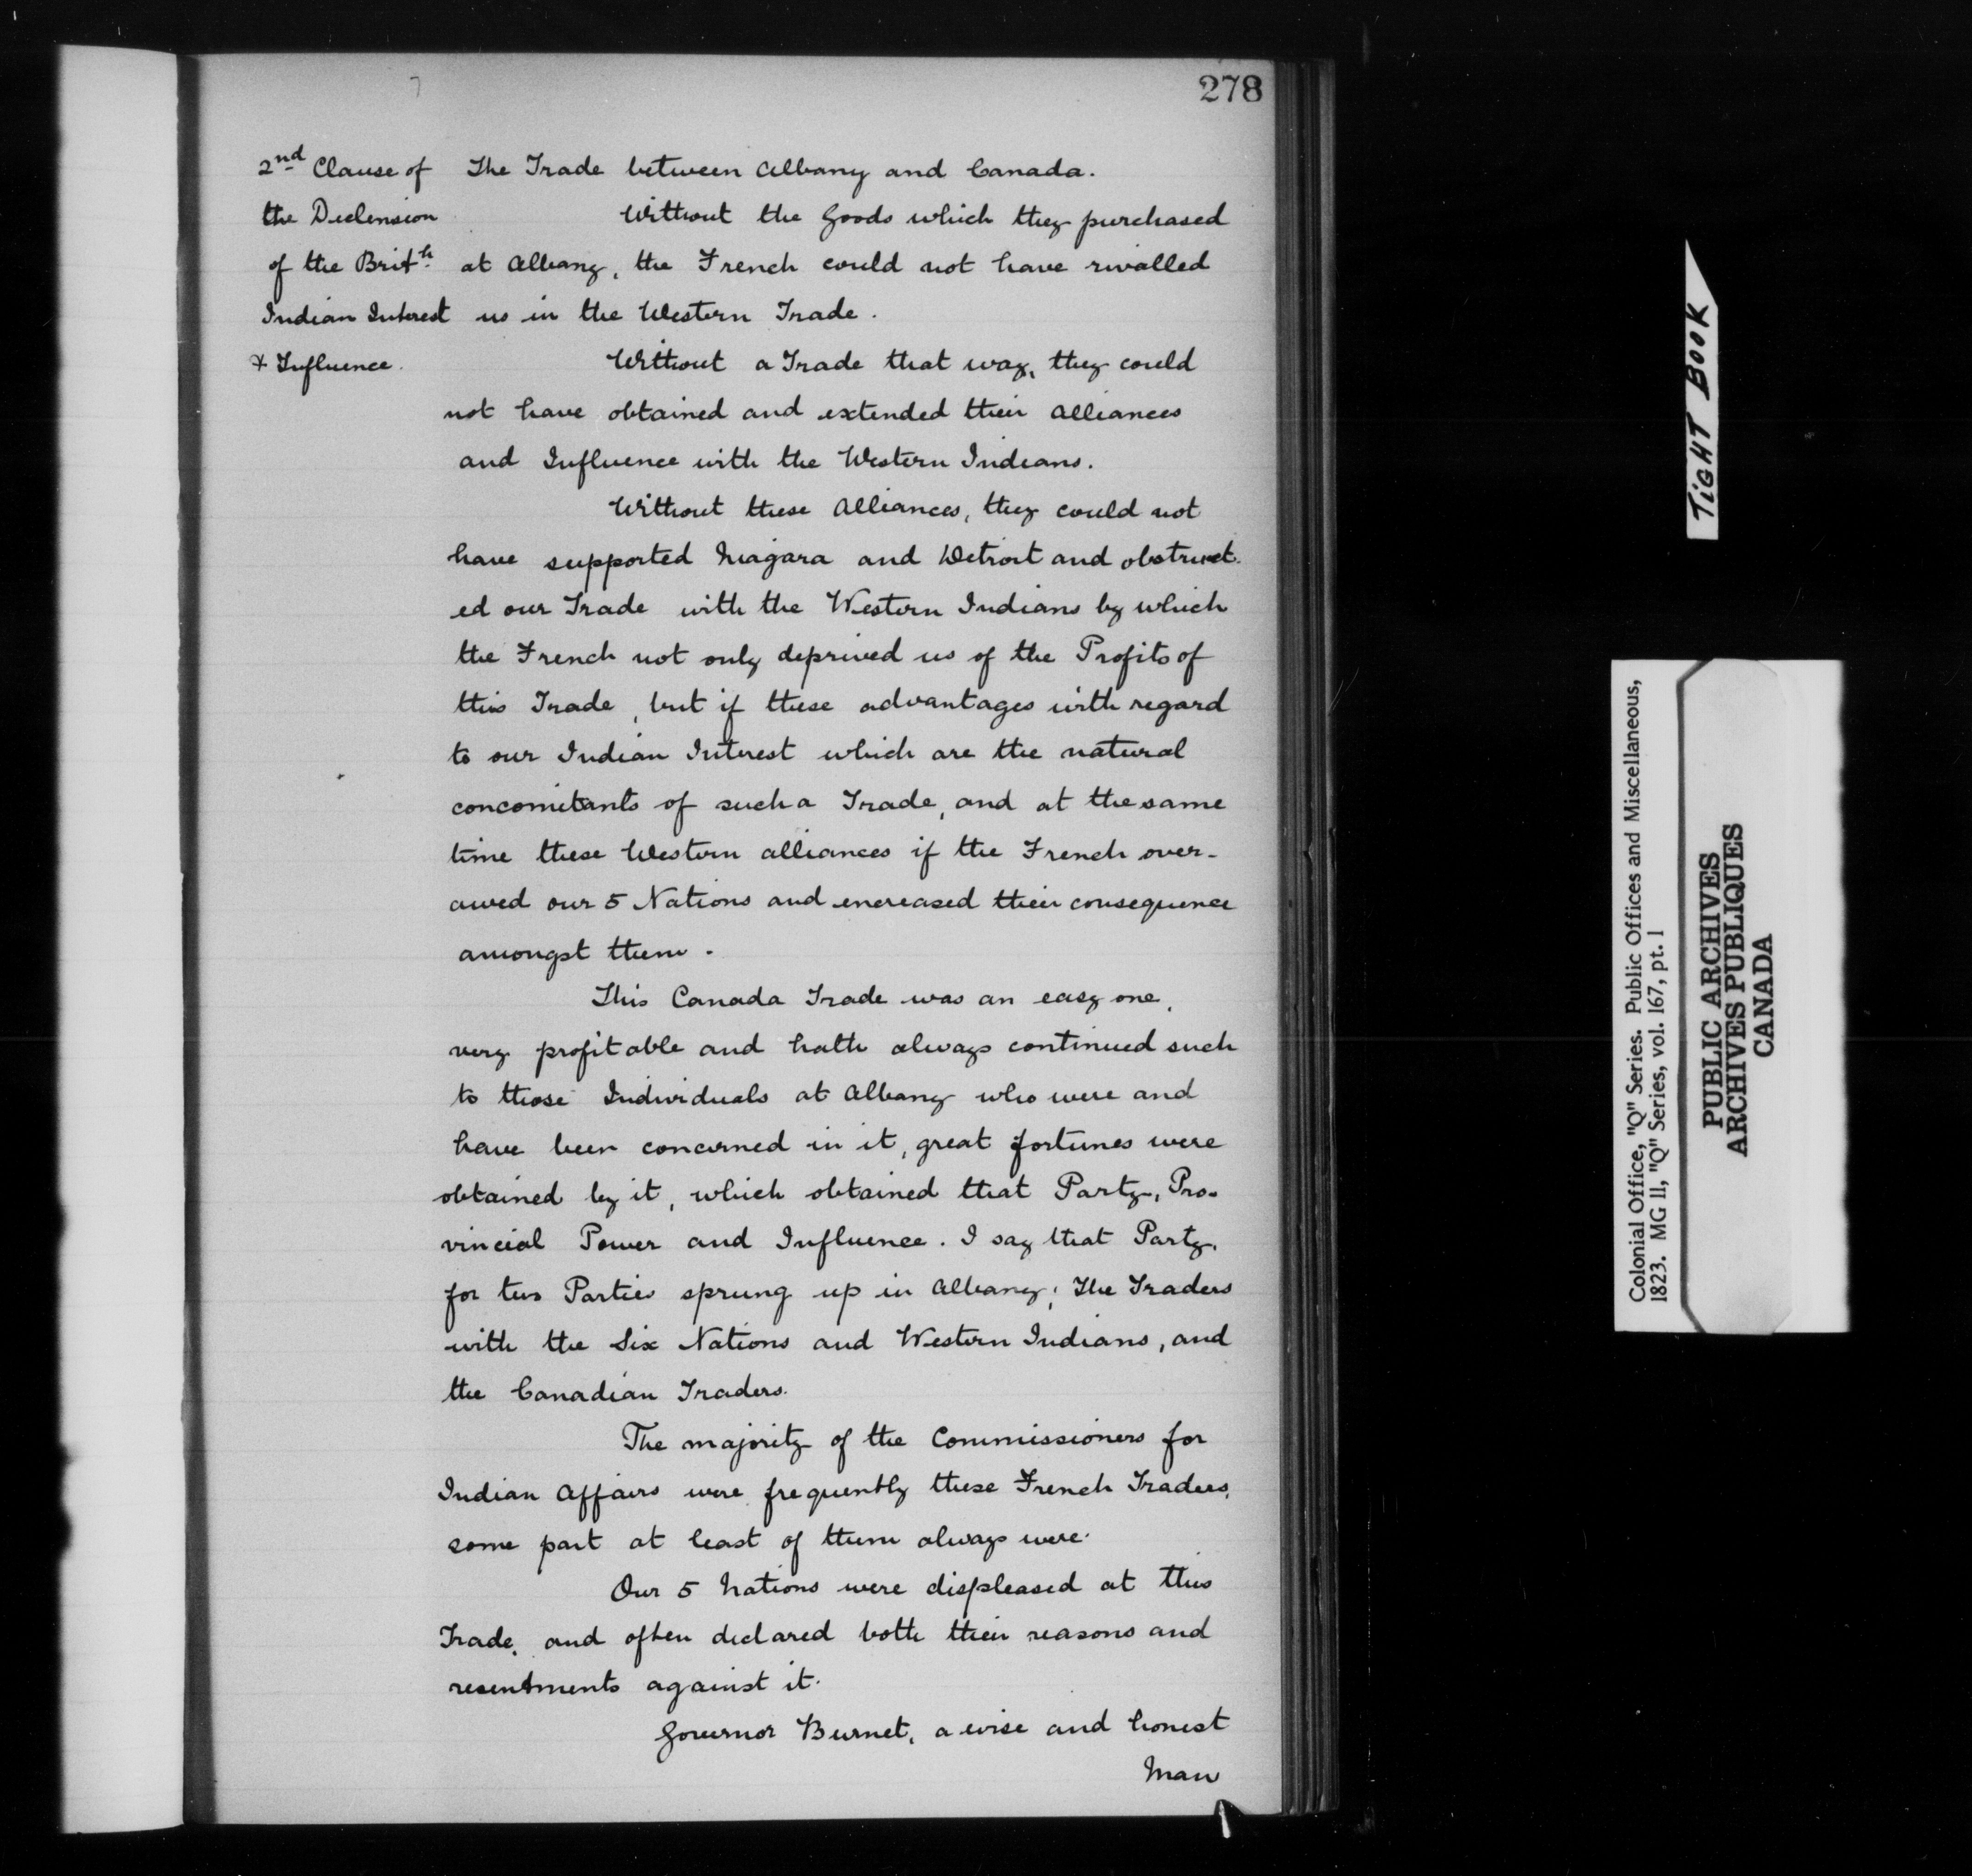 278
2nd Clause of
the Declension
of the Brith
Indian Interest
& Influence.
The Trade between Albany and Canada.
Without the Goods which they purchased
at Albany, the French could not have rivalled
us in the Western Trade.
Without a Trade that way, they could
not have obtained and extended their Alliances
and Influence with the Western Indians.
Without these Alliances, they could not
have supported Niagara and Detroit and obstruct-
ed our Trade with the Western Indians by which
the French not only deprived us of the Profits of
this Trade, but if these advantages with regard
to our Indian Interest which are the natural
concomitants of such a Trade, and at the same
time these Western alliances if the French over-
awed our 5 Nations and encreased their consequence
amongst them.
This Canada Trade was an easy one,
very profitable and hath always continued such
to those Individuals at Albany who were and
have been concerned in it, great fortunes were
obtained by it, which obtained that Party, Pro-
vincial Power and Influence. I say that Party,
for two Parties sprung up in Albany; The Traders
with the Six Nations and Western Indians, and
the Canadian Traders.
The majority of the Commissioners for
Indian Affairs were frequently these French Traders,
some part at least of them always were.
Our 5 Nations were displeased at this
Trade, and often declared both their reasons and
resentments against it.
Governor Burnet, a wise and honest
Man
TIGHT BOOK
Colonial Office, "Q" Series. Public Offices and Miscellaneous,
1823. MG 11, "Q" Series, vol. 167, pt. 1
PUBLIC ARCHIVES
ARCHIVES PUBLIQUES
CANADA